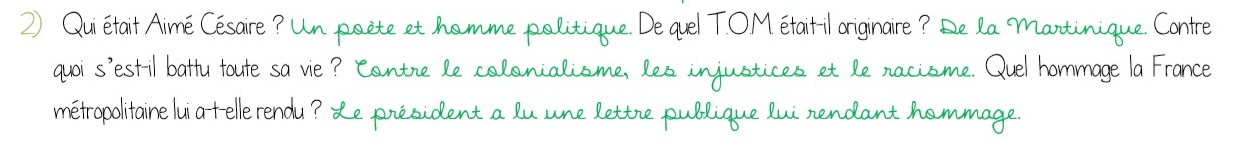 2) Qui était Aimé Césaire ? Un poète et homme politique. De quel T.O.M était-il originaire ? De la Martinique. Contre
quoi s'est-il battu toute sa vie ? Contre le colonialisme, les injustices et le racisme. Quel hommage la France
métropolitaine lui a-t-elle rendu ? Le président a lu une lettre publique lui rendant hommage.